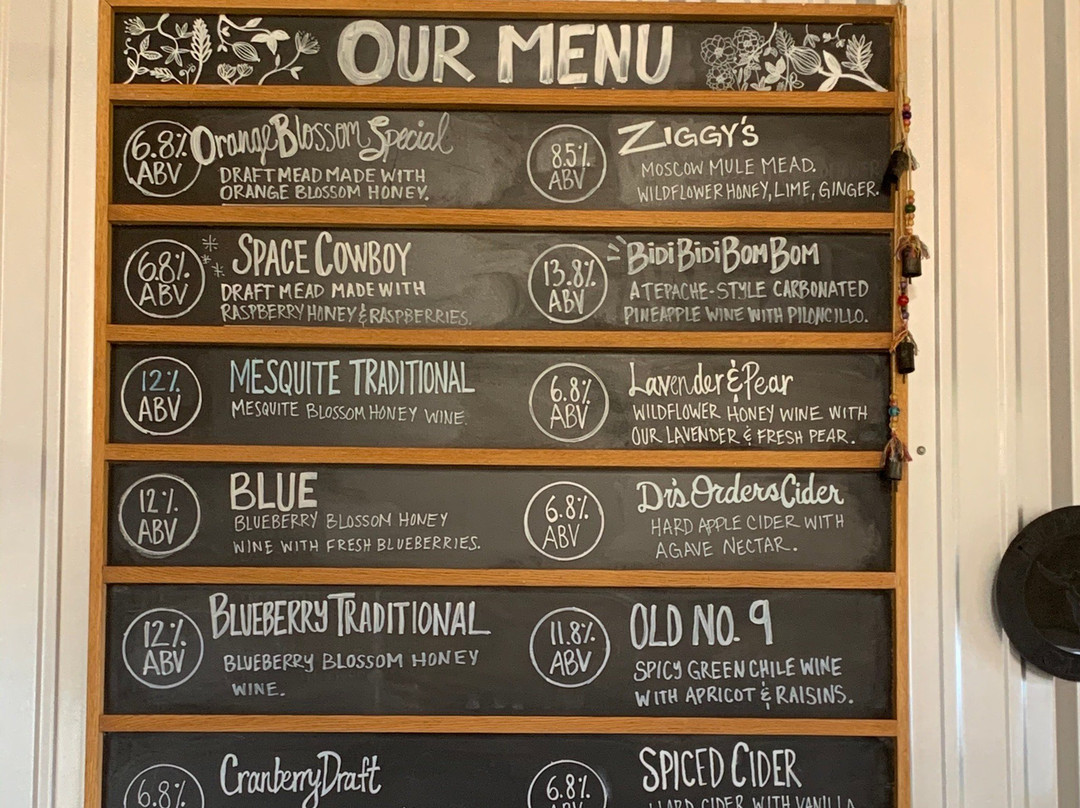 OUR MENU
6.8% ABV
Orange Blossom Special
DRAFT MEAD MADE WITH
ORANGE BLOSSOM HONEY.
8.5% ABV
ZIGGY'S
MOSCOW MULE MEAD.
WILDFLOWER HONEY, LIME, GINGER.
6.8% ABV
SPACE COWBOY
DRAFT MEAD MADE WITH
RASPBERRY HONEY & RASPBERRIES.
13.8% ABV
BIDI BIDI BOM BOM
A TEPACHE-STYLE CARBONATED
PINEAPPLE WINE WITH PILONCILLO.
12% ABV
MESQUITE TRADITIONAL
MESQUITE BLOSSOM HONEY WINE.
6.8% ABV
Lavender & Pear
WILDFLOWER HONEY WINE WITH
OUR LAVENDER & FRESH PEAR.
12% ABV
BLUE
BLUEBERRY BLOSSOM HONEY
WINE WITH FRESH BLUEBERRIES.
6.8% ABV
Dr's Orders Cider
HARD APPLE CIDER WITH
AGAVE NECTAR.
12% ABV
BLUEBERRY TRADITIONAL
BLUEBERRY BLOSSOM HONEY
WINE.
11.8% ABV
OLD NO. 9
SPICY GREEN CHILE WINE
WITH APRICOT & RAISINS.
6.8%
Cranberry Draft
6.8% ABV
SPICED CIDER
HARD CIDER WITH VANILLA